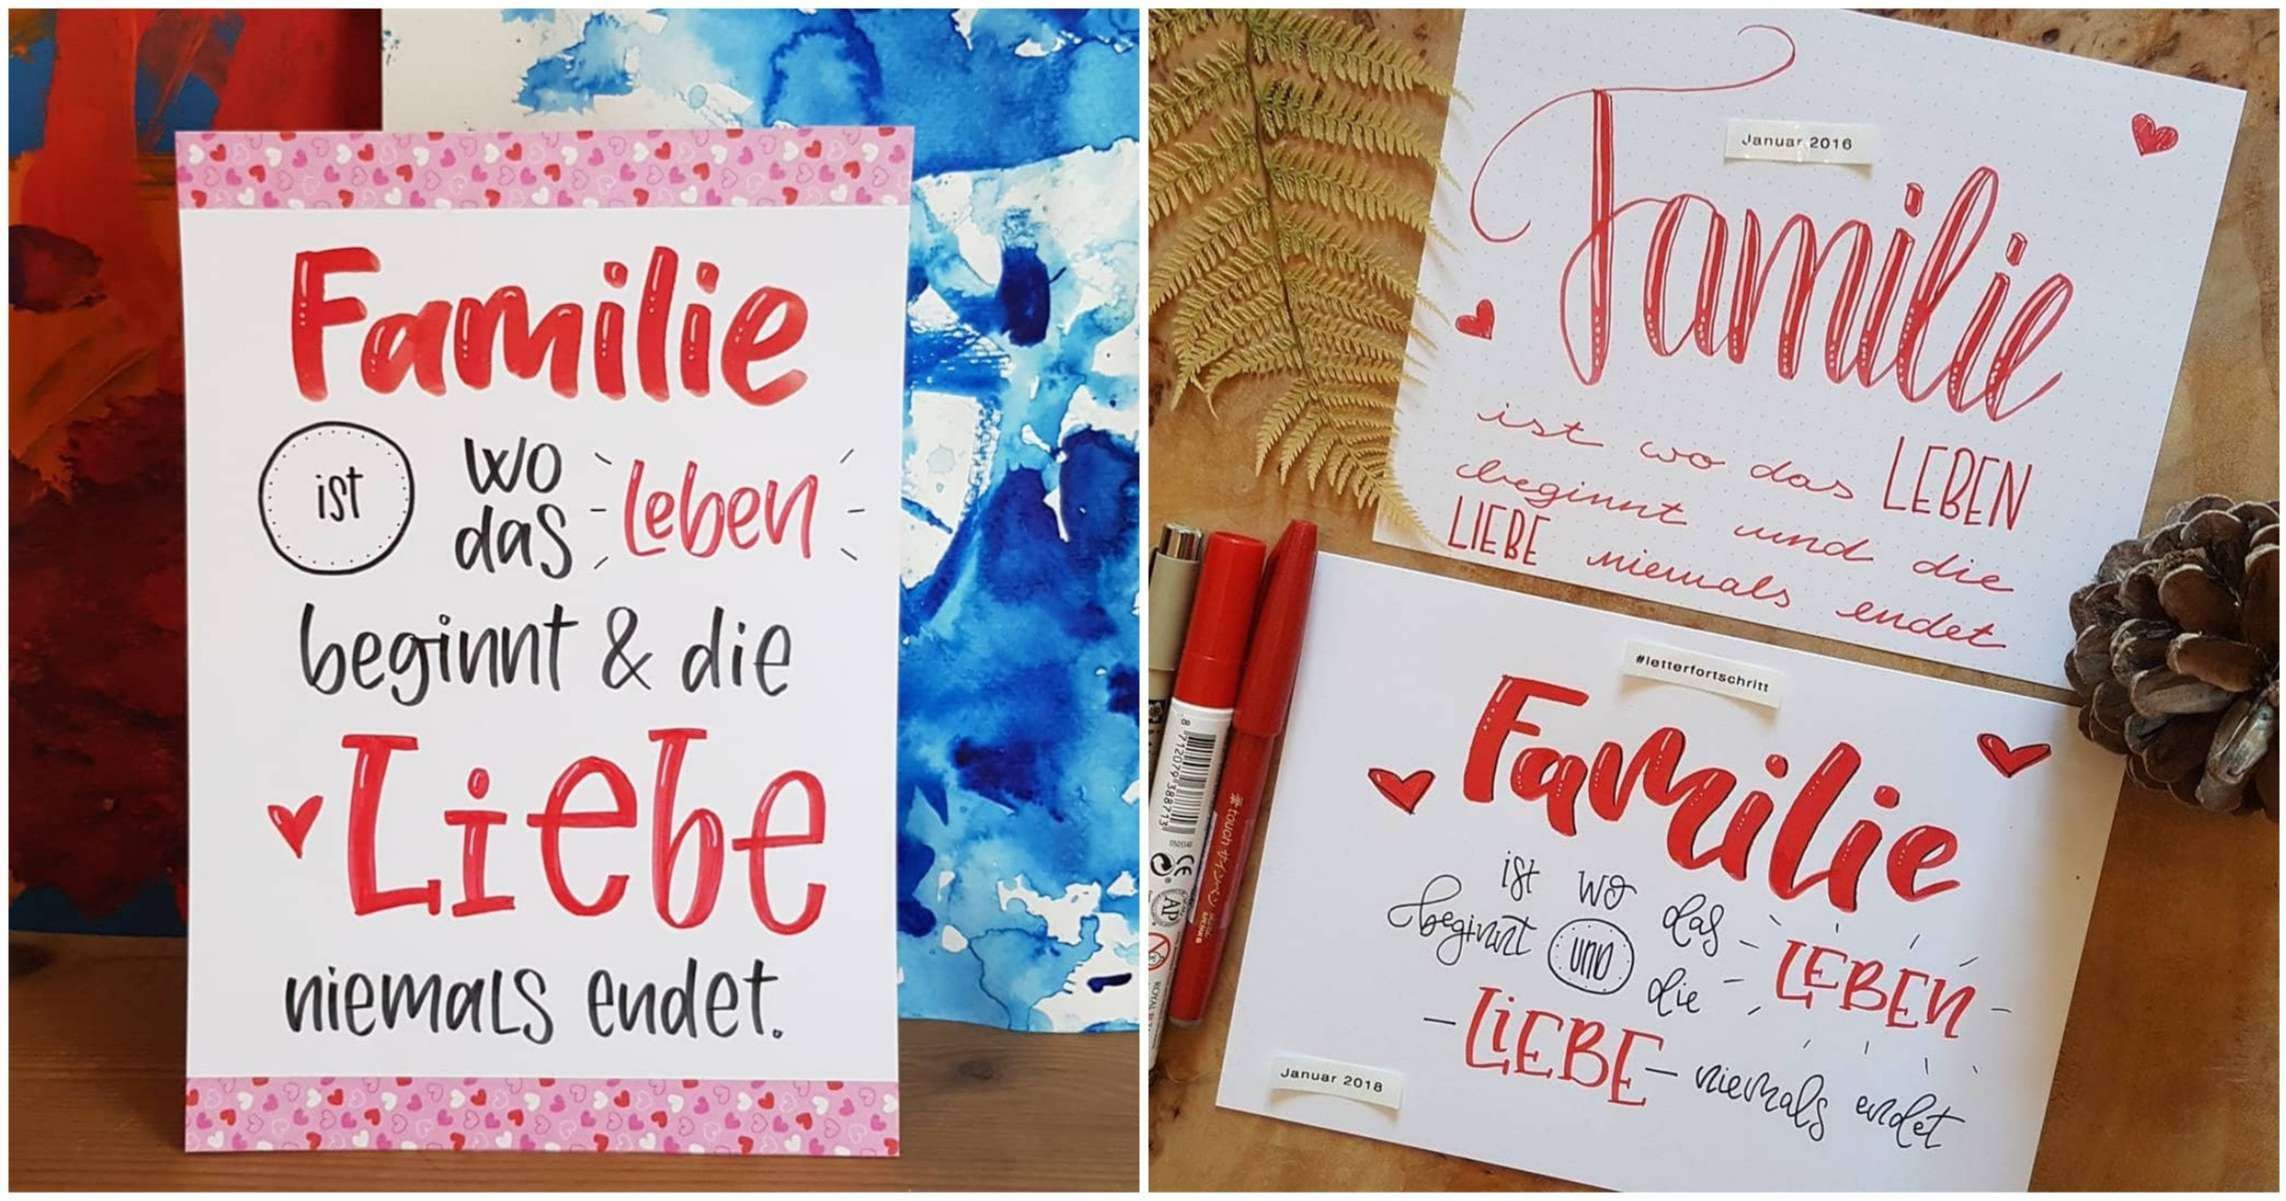 Familie
ist wo das Leben
beginnt & die
Liebe
niemals endet.
Januar 2016
Familie
ist wo das LEBEN
beginnt und die
LIEBE niemals endet
#letterfortschritt
Familie
ist wo das LEBEN
beginnt und die
LiEBE niemals endet
Januar 2018
8 712079 388713
touch
AP
CE